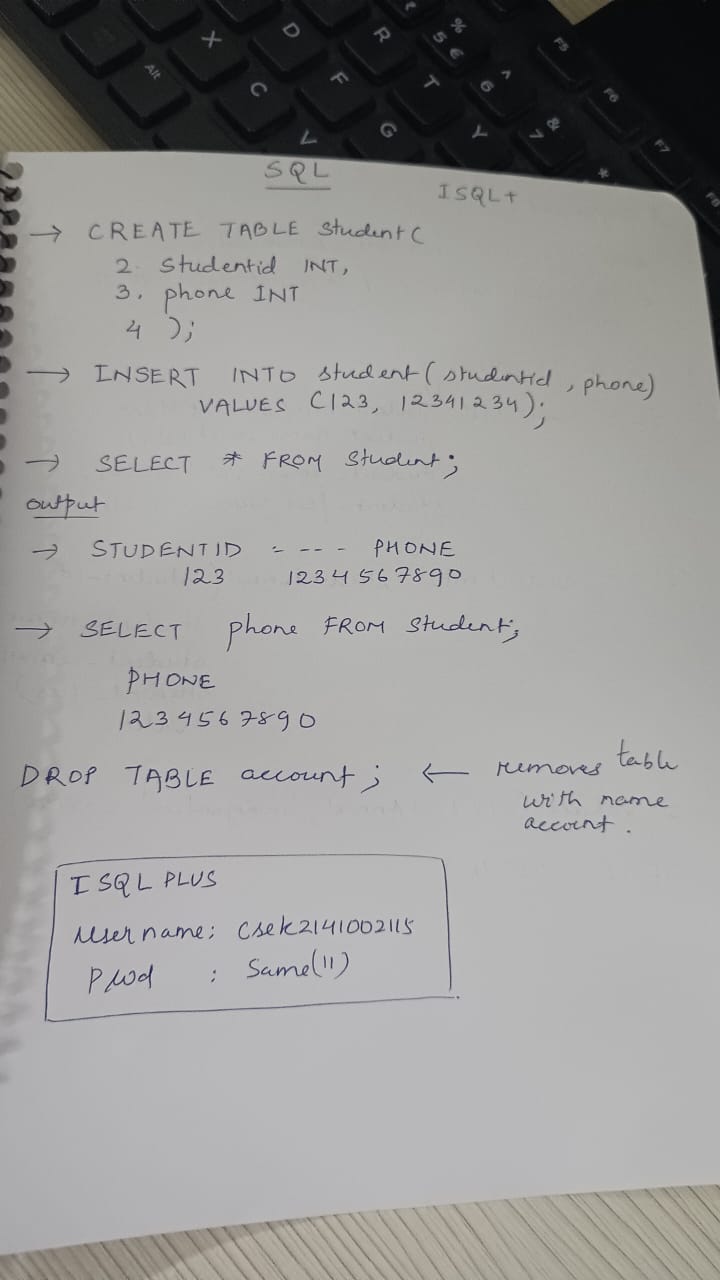 Alt
X
C
D
F
V
R
G
%
5 €
T
^
6
Y
&
7
F5
F6
*
F7
F8
SQL
ISQL+
→ CREATE TABLE student (
2. studentid INT,
3. phone INT
4 );
→ INSERT INTO student (studentid, phone)
VALUES (123, 12341234);
→ SELECT * FROM student;
output
→ STUDENTID - --- PHONE
123 1234567890
→ SELECT phone FROM student;
PHONE
1234567890
DROP TABLE account; ← removes table
with name
account.
ISQL PLUS
username: csek2141002115
Pwd : Same(11)